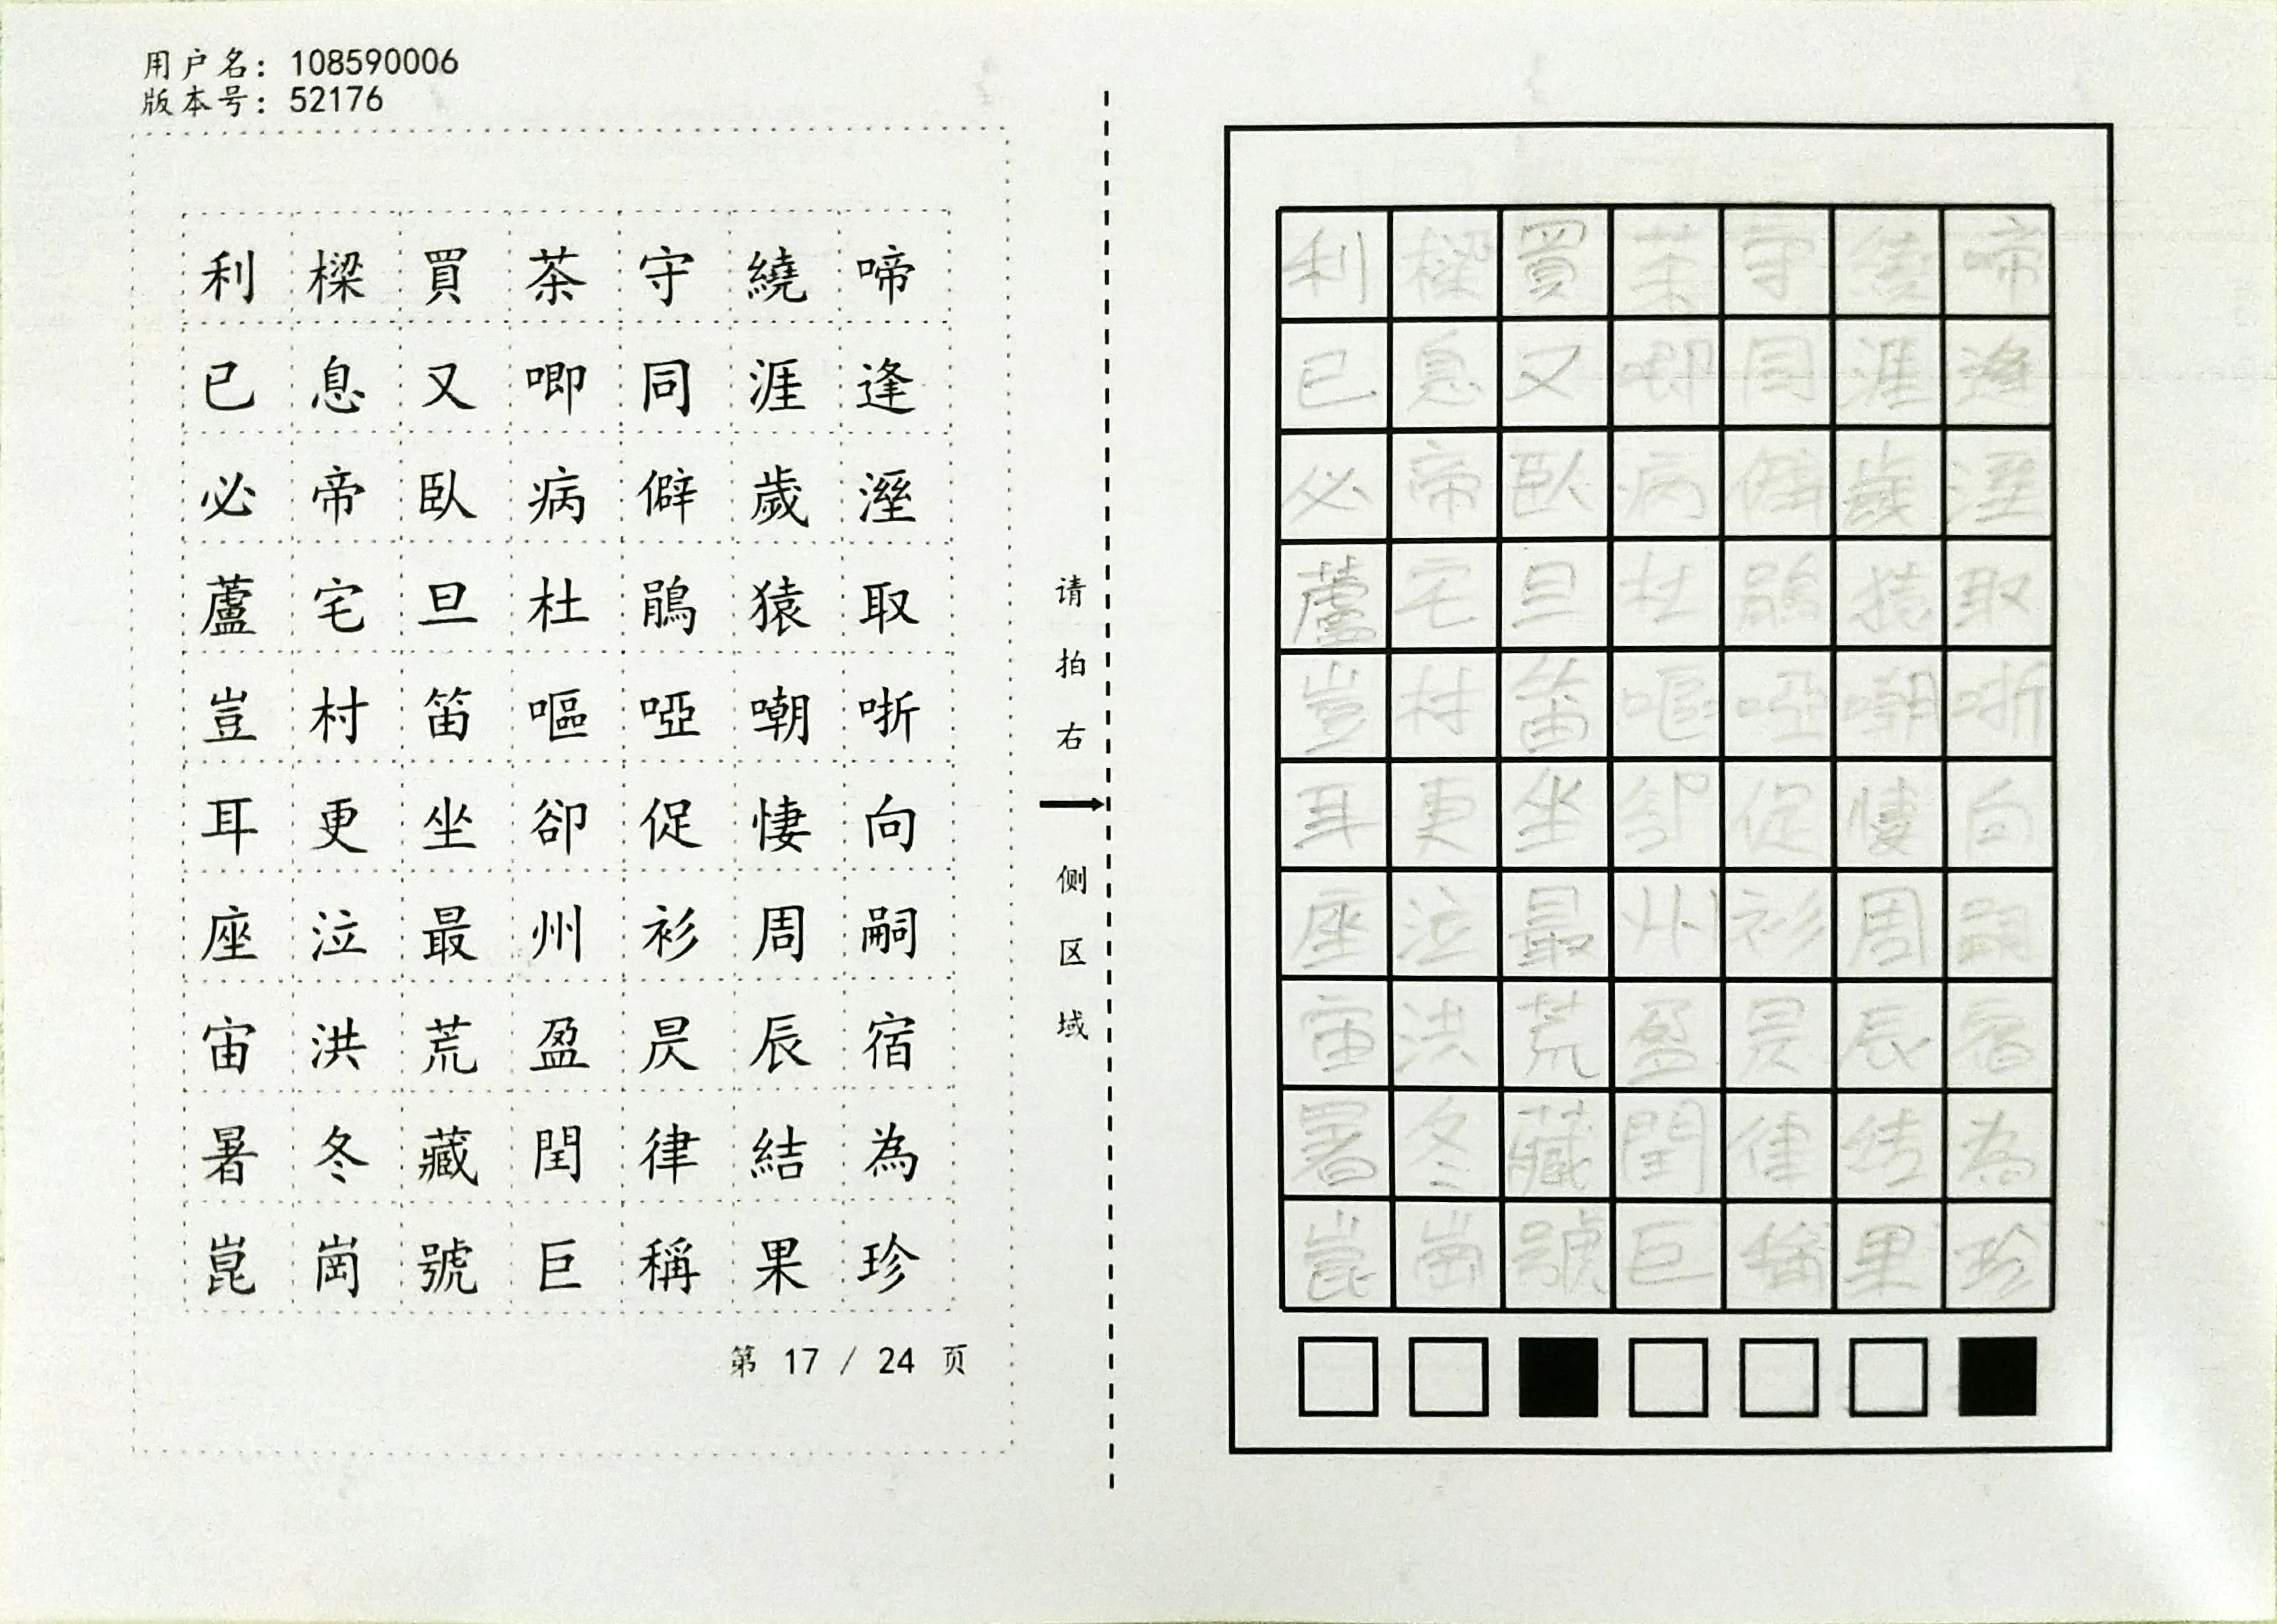 用户名: 108590006
版本号: 52176
利樑買茶守繞啼
已息又唧同涯逢
必帝臥病僻歲溼
蘆宅旦杜鵑猿取
豈村笛嘔啞嘲哳
耳更坐卻促悽向
座泣最州衫周嗣
宙洪荒盈昃辰宿
暑冬藏閏律結為
崑崗號巨稱果珍
第 17 / 24 页
请拍右侧区域
利樑買茶守繞啼
已息又唧同涯逢
必帝臥病僻歲溼
蘆宅旦杜鵑猿取
豈村笛嘔啞嘲哳
耳更坐卻促悽向
座泣最州衫周嗣
宙洪荒盈昃辰宿
暑冬藏閏律結為
崑崗號巨稱果珍